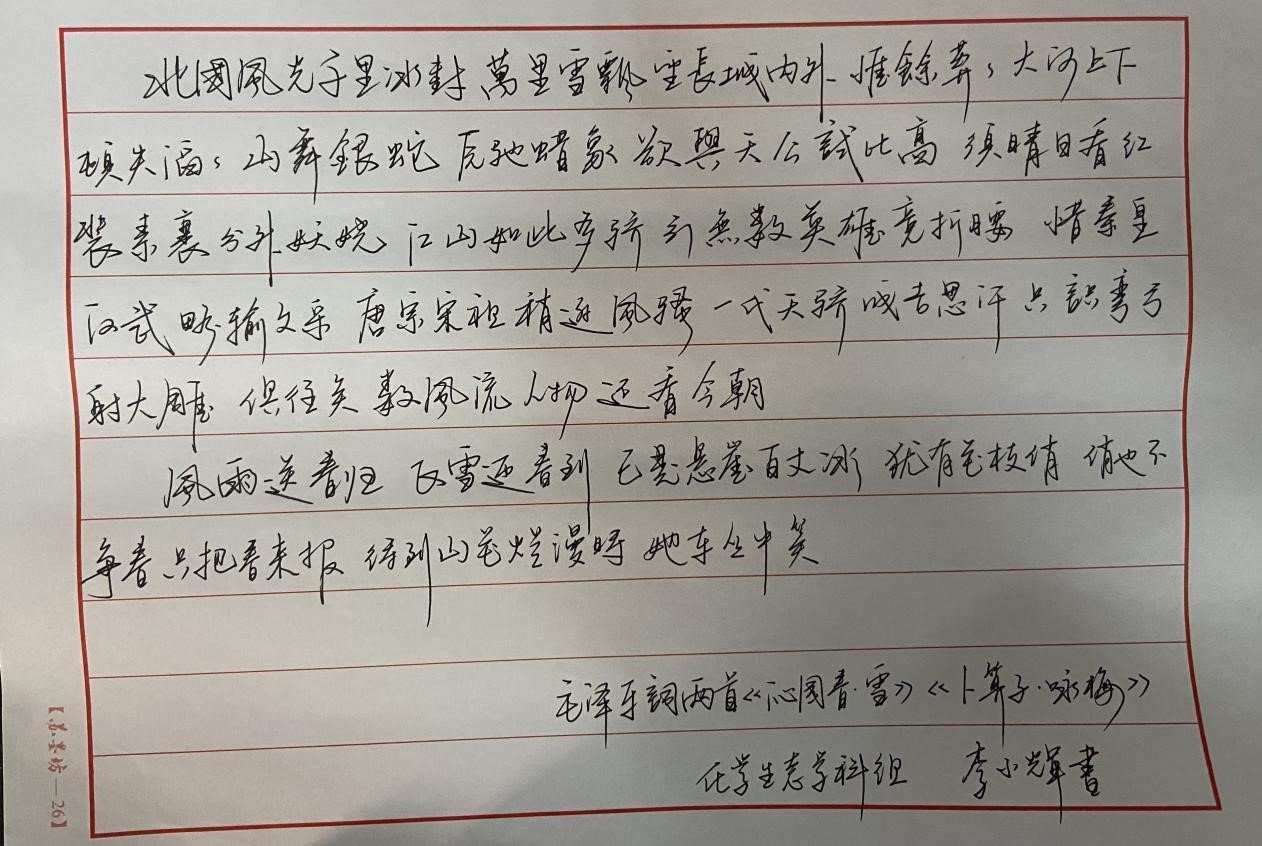 北國風光千里冰封 萬里雪飘望長城内外 惟餘莽々大河上下
頓失滔々山舞銀蛇 原驰蜡象 欲與天公試比高 须晴日看红
装素裹分外妖娆 江山如此多骄引無数英雄竞折腰 惜秦皇
汉武略输文采 唐宗宋祖稍逊風骚 一代天骄成吉思汗只識弯弓
射大雕 俱往矣数風流人物还看今朝
風雨送春归 飞雪迎春到 已是悬崖百丈冰 犹有花枝俏 俏也不
争春只把春来报 待到山花烂漫時 她在丛中笑
毛泽东詞两首《沁园春·雪》《卜算子·咏梅》
化学生态学科组 李小輝書
【苏墨坊—26】